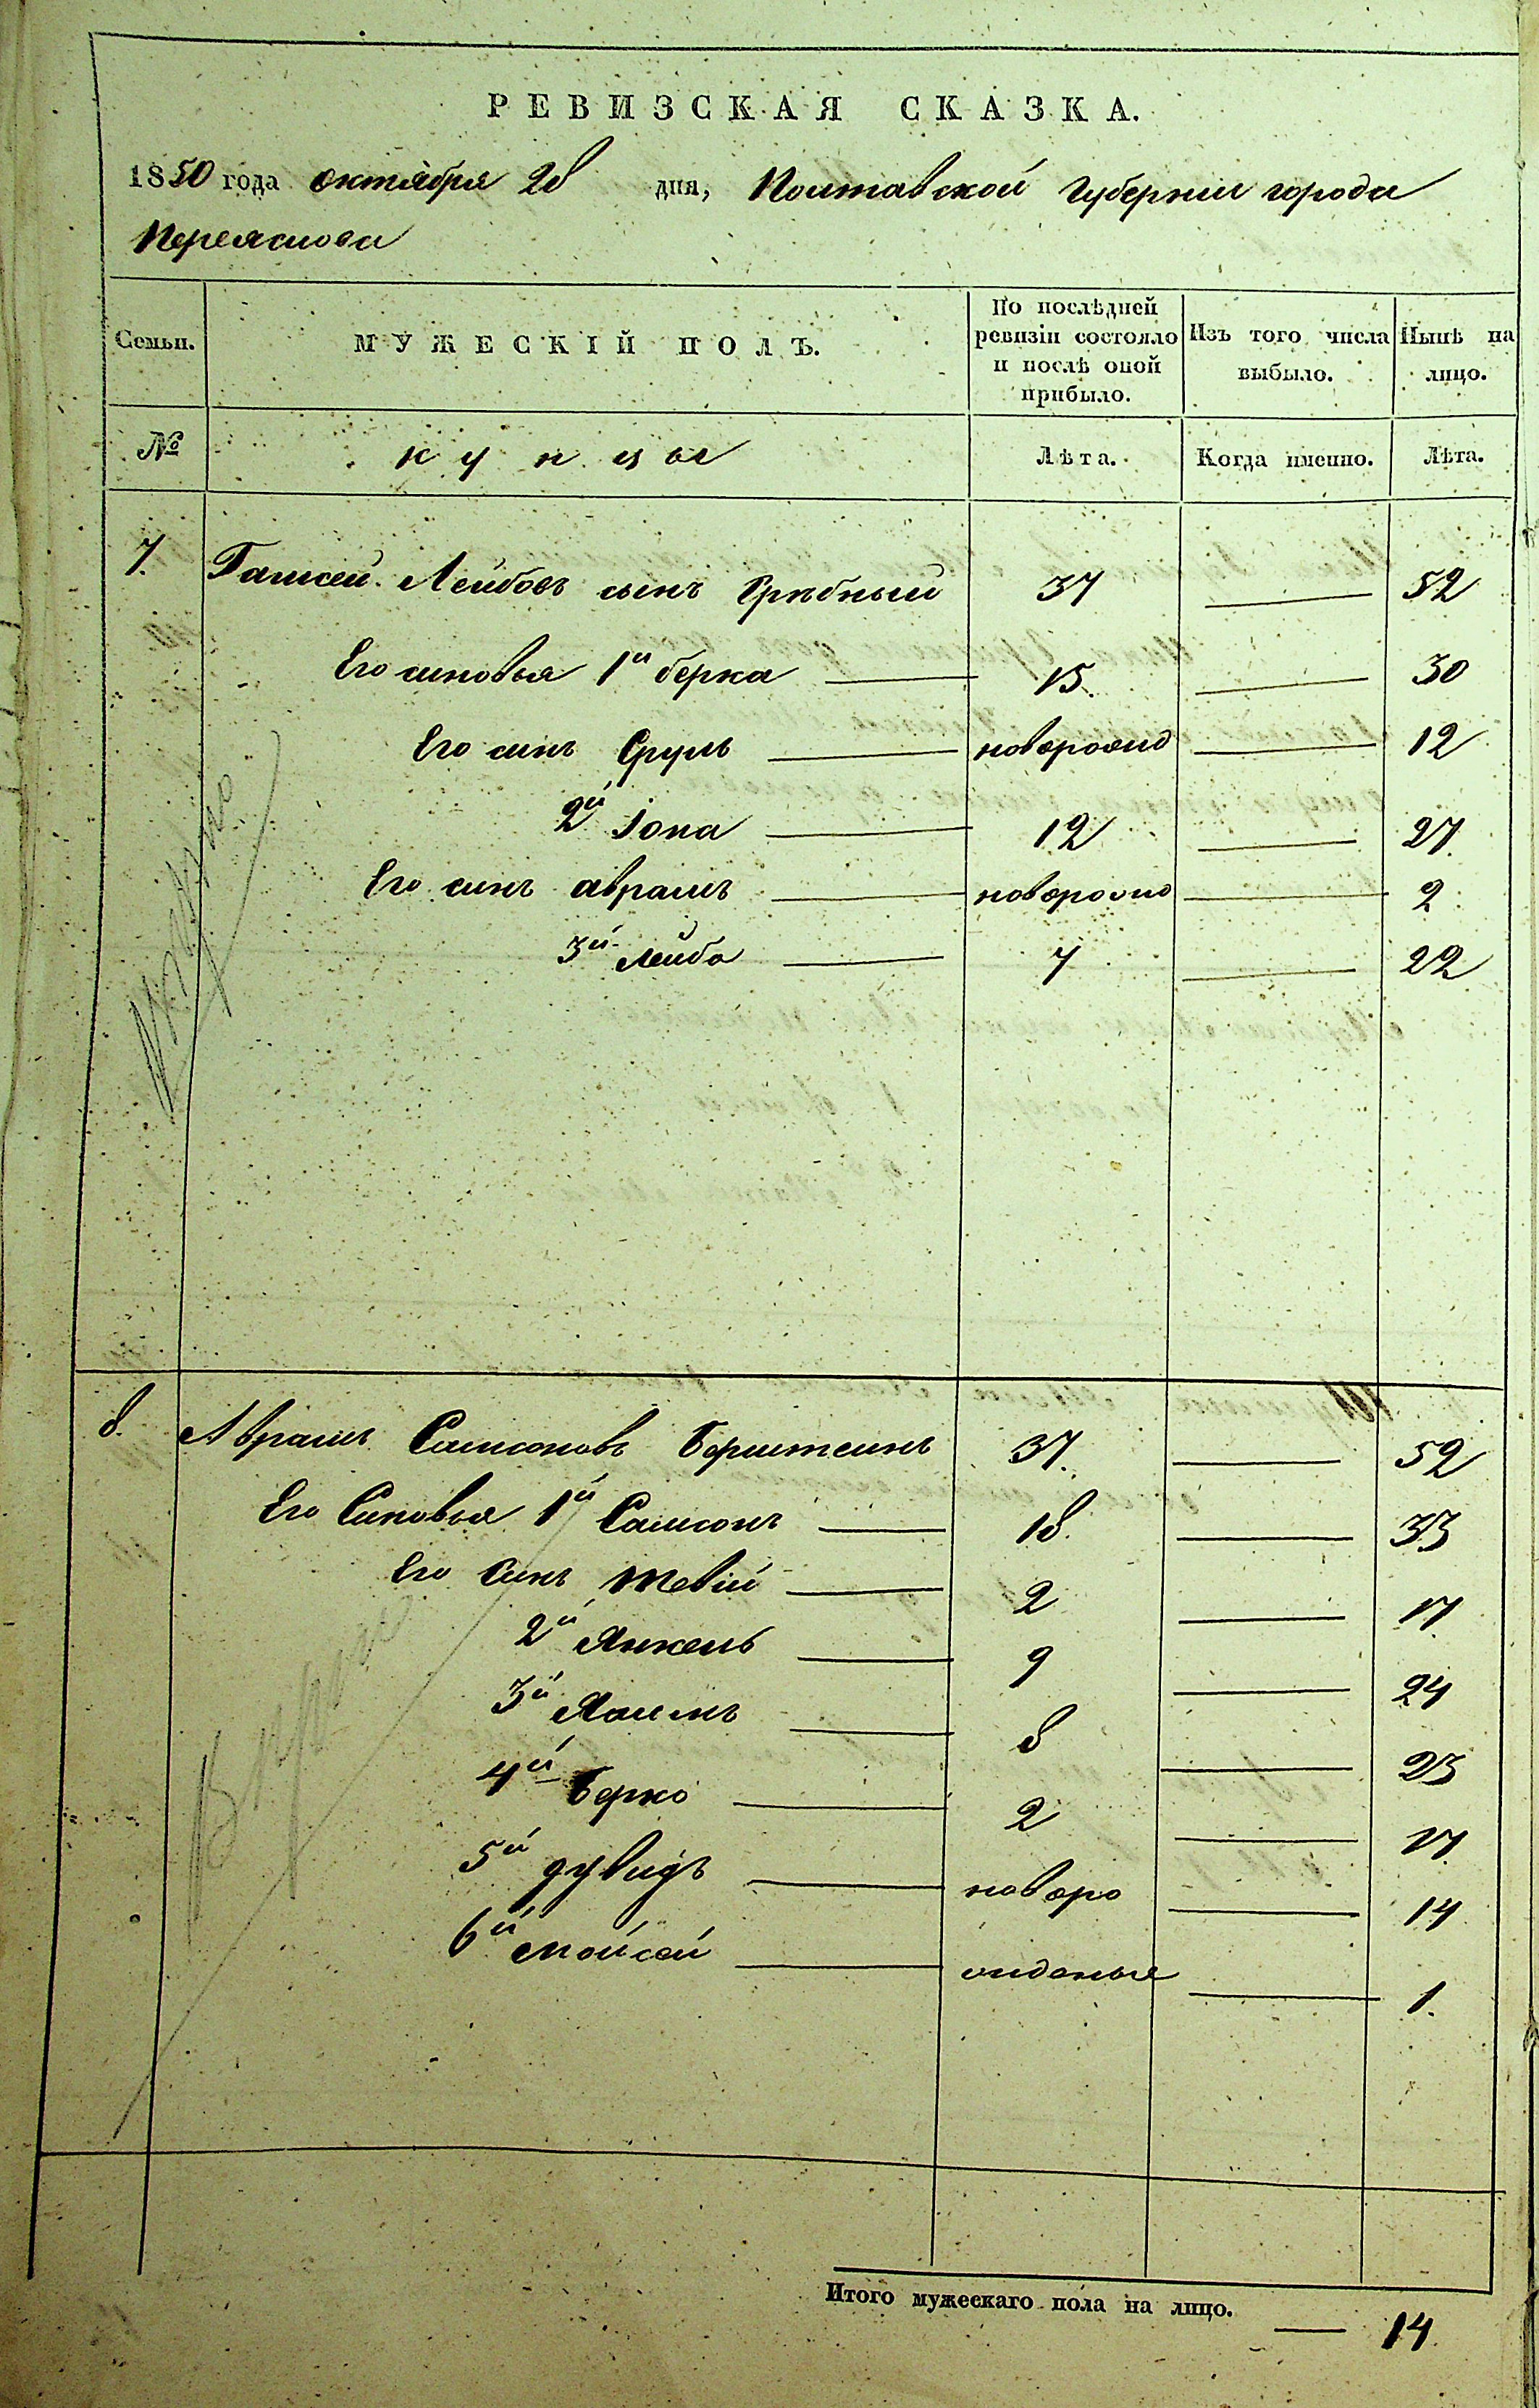 РЕВИЗСКАЯ СКАЗКА.
1850 года октября 28 дня, Полтавской губернии города
Переяслова
Семьи. МУЖЕСКІЙ ПОЛЪ. По послѣдней ревизіи состояло и послѣ оной прибыло. Изъ того числа выбыло. Нынѣ на лицо.
№ купцы Лѣта. Когда именно. Лѣта.
7. Лейбовъ сынъ 37 — 52
Его синовья 1й Берка — 15. — 30
Его синъ Сруль — новорожд — 12
2й Іона — 12 — 27.
Его синъ Аврамъ — новорожд — 2.
3й Лейба — 7 — 22
8. Аврамъ Самсоновъ Берштеинъ 37. — 52
Его Синовья 1й Самсонъ — 18. — 33
Его Синъ Тевій — 2 — 17.
2й Янкель — 9 — 24
3й — 8 — 23
4й Берко — 2 — 17.
5й Дувидъ — новоро — 14.
6й Мойсей — жденые — 1.
Итого мужескаго пола на лицо. — 14.